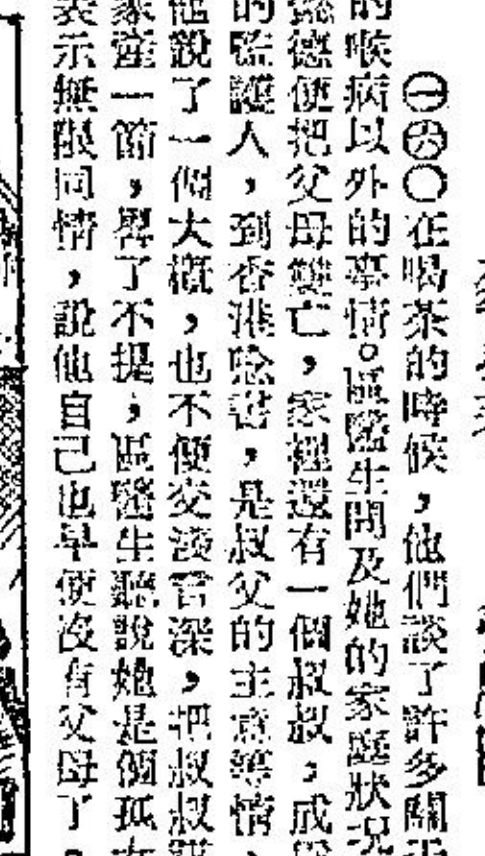 ㊀㊅〇在喝茶的時候，他們談了許多關
的喉病以外的事情。區醫生問及她的家庭狀況
懿德便把父母雙亡，家裡還有一個叔叔，成
的監護人，到香港唸書，是叔父的主意等情
他說了一個大概，也不便交淺言深，把叔叔
家產一節，畧了不提，區醫生聽說她是個孤
表示無限同情，說他自己也早便沒有父母了。